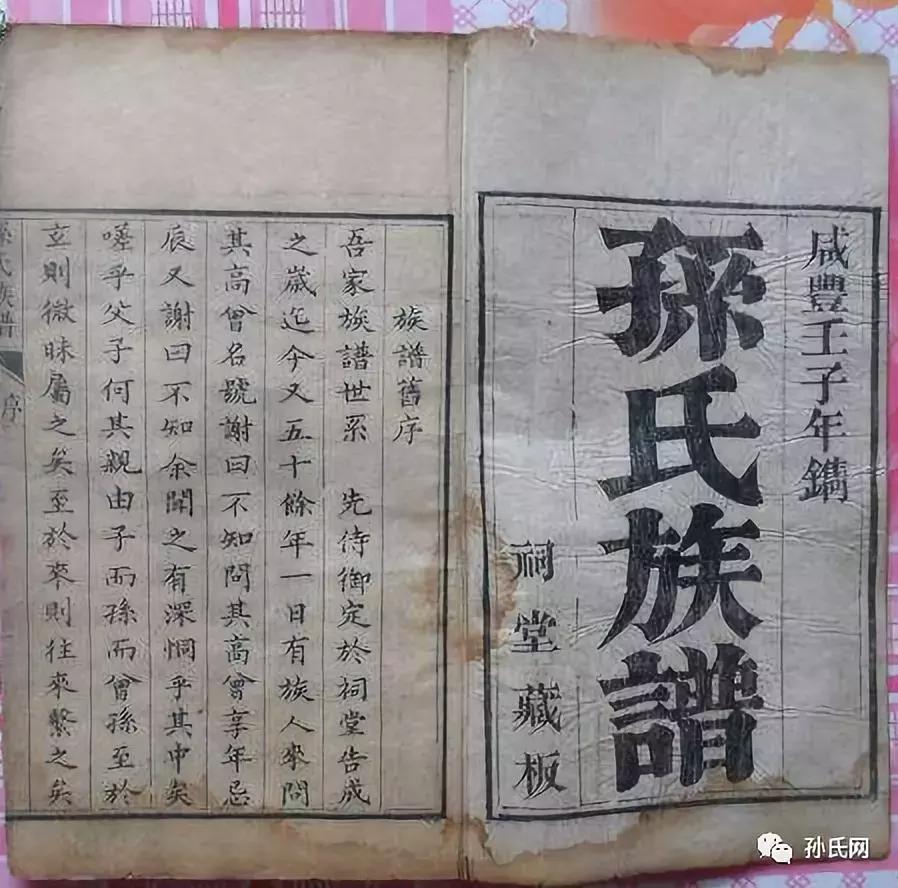 咸豐壬子年鐫
孫氏族譜
祠堂藏板
族譜舊序
吾家族譜世系 先侍御定於祠堂告成
之歲迄今又五十餘年一日有族人來問
其高曾名號謝曰不知問其高曾享年忌
辰又謝曰不知余聞之有深惻乎其中矣
嗟乎父子何其親由子而孫而曾孫至於
玄則微昧屬之矣至於來則往來繫之矣
孫氏族譜 序
孙氏网